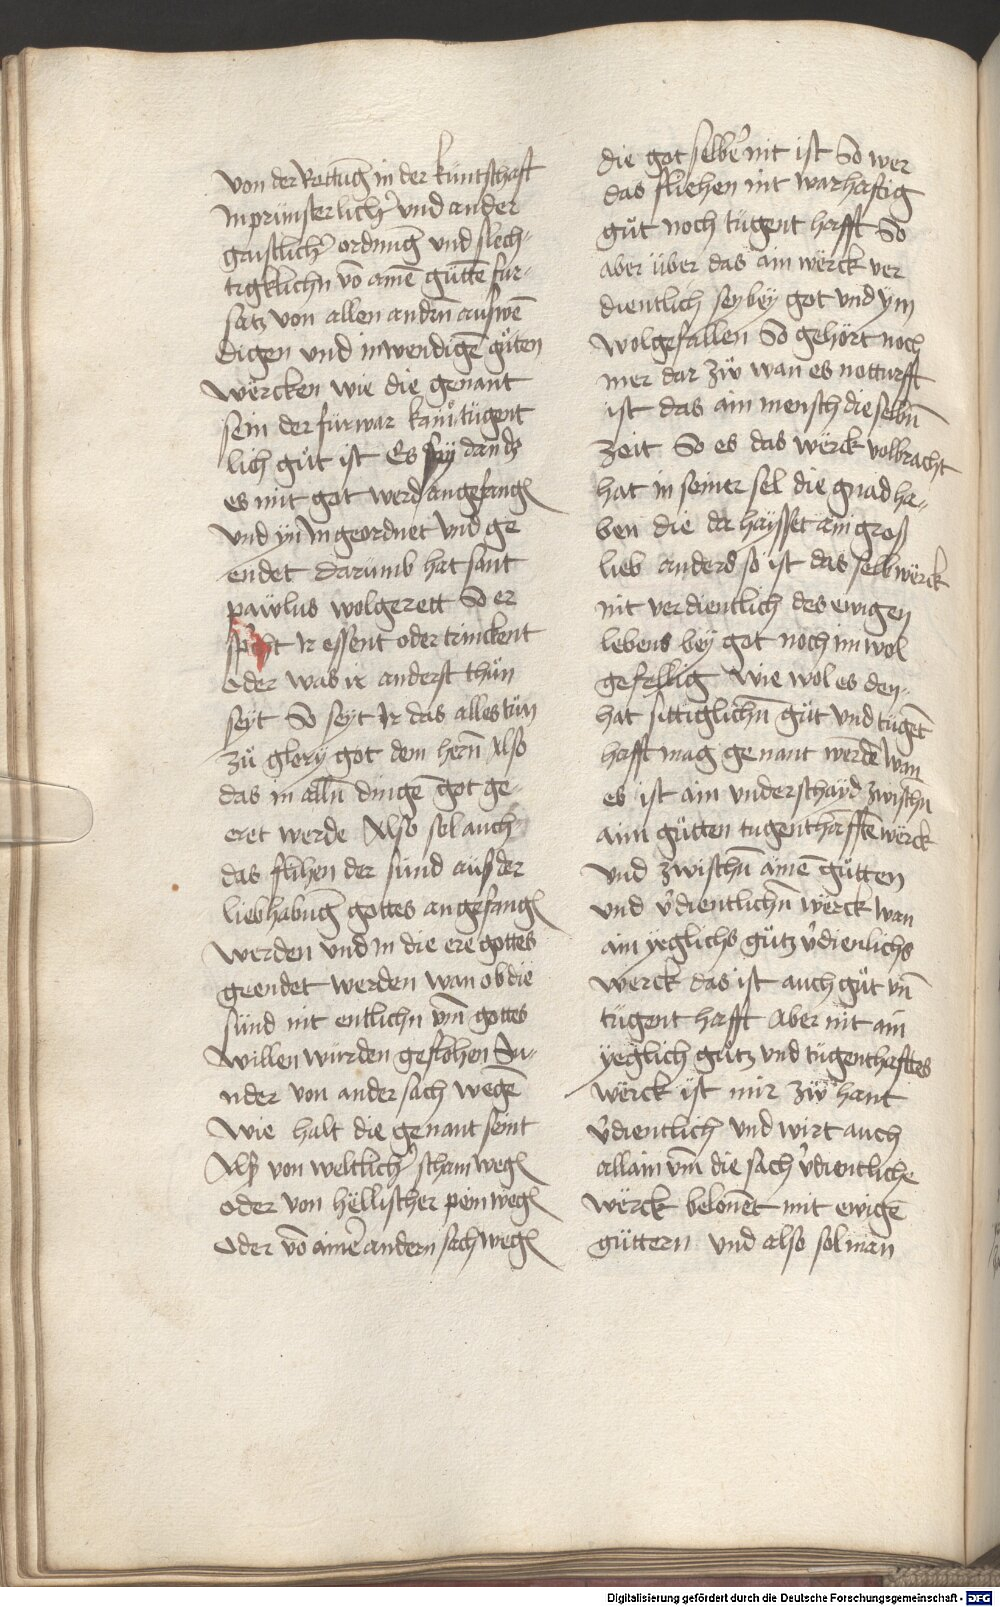 von der Rattūg in der kuntschaft
Inprünsterlich͛ vnd ander
gaistlich͛ ordnūg vnd slech-
tigklichn̄ vō ainē gūttē fur-
satz von allen andrn̄ auswē
digen vnd inwendigē gůten
wercken wie die genant
sein der fürwar kains tügent
lich gůt ist Es sey dan dz
es mit got werd angefangꝭ
vnd yn In geordnet vnd ge
endet darumb hat sant
pawlus wolgerett So er
spicht Ir essent oder trinckent
oder was ir anderst thůn
seyt So seyt Ir das alles tün
zů glory got dem hern̄ Also
das in alln̄ dingē got ge-
eret werde Also sol auch
das flihen der sünd aus der
liebhabūg gottes angefangꝭ
werden vnd in die ere gottes
geendet werden wan ob die
sünd nit entlichn̄ vm̄ gottes
willen würden geflohen Su-
nder von ander sach wegē
wie halt die genant seint
Als von weltlich͛ scham wegꝭ
oder von hëllischer pein wegꝭ
oder vō ainer andern sach wegꝭ
die got selber nit ist So wer
das fliehen nit warhaftig
gůt noch tügent hafft So
aber über das ain wërck ver
dientlich sey bëy got vnd ym
wolgefallen So gehört noch
mer dar zů wan es notturfft
ist das ain mensch die selbn̄
zeit So es das wërck volbracht
hat in seiner sel die gnad ha-
ben die da haysset ain groß
lieb anders so ist das selb wërck
nit verdientlich des ewigen
lebens bey got noch im wol
gefellig wie wol es den-
hat sittiglichn̄ gůt vnd tügēt
hafft mag genant werdē wan
es ist ain vnderschayd zwischn̄
aim gůtten tugenthafftē wërck
vnd zwischn̄ ainē gůtten
vnd v͛dientlichn̄ wërck wan
ain yeglichs gůtz v͛dienlichs
werck das ist auch gůt vn̄
tügent hafft Aber nit ain
yeglich gůtz vnd tügenthafftes
wërck ist mir zů hant
v͛dientlich vnd wirt auch
allain vm̄ die sach v͛dientliche
wërck belonet mit ewigē
güttern vnd also sol man
Digitalisierung gefördert durch die Deutsche Forschungsgemeinschaft - DFG